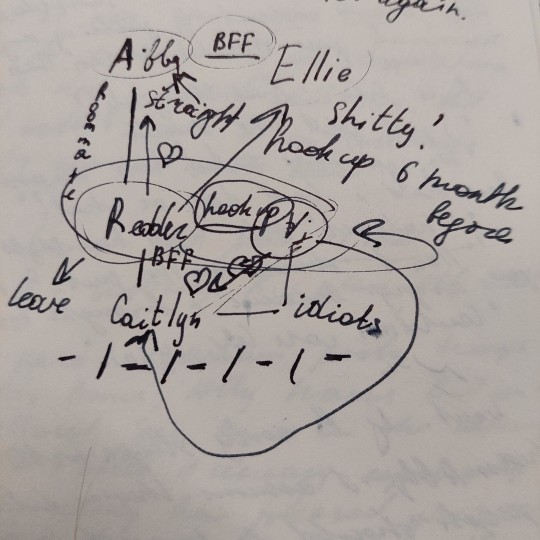 again.
Abby BFF Ellie
roommate
straight
shitty!
hook up 6 month
before
Reader hook up Vi
BFF
leave
Caitlyn idiots